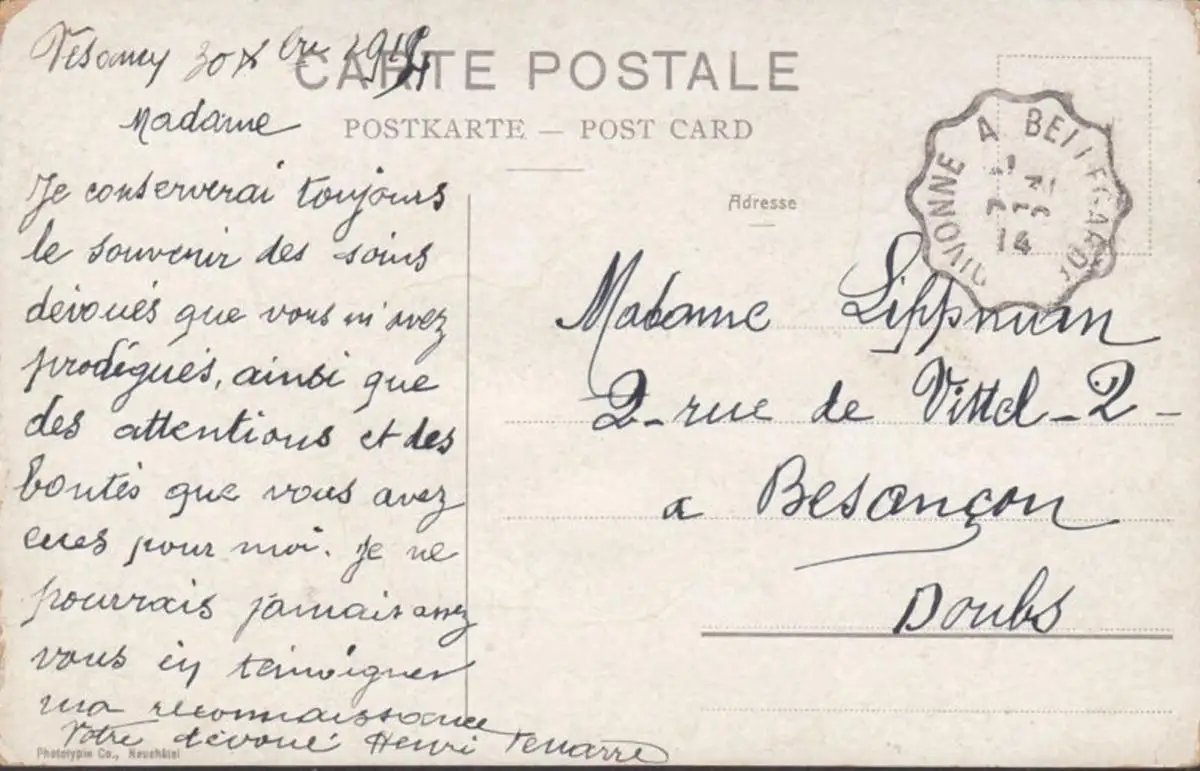 Vésancy 30 Xbre 1914
CARTE POSTALE
Madame
POSTKARTE — POST CARD
Je conserverai toujours
le souvenir des soins
dévoués que vous m'avez
prodigués, ainsi que
des attentions et des
bontés que vous avez
eues pour moi. Je ne
pourrais jamais assez
vous en témoigner
ma reconnaissance
Votre dévoué Henri
Phototypie Co., Neuchâtel
DIVONNE A BELLEGARDE
31
14
Adresse
Madame Lippman
2 - rue de Vittel - 2 -
a Besançon
Doubs